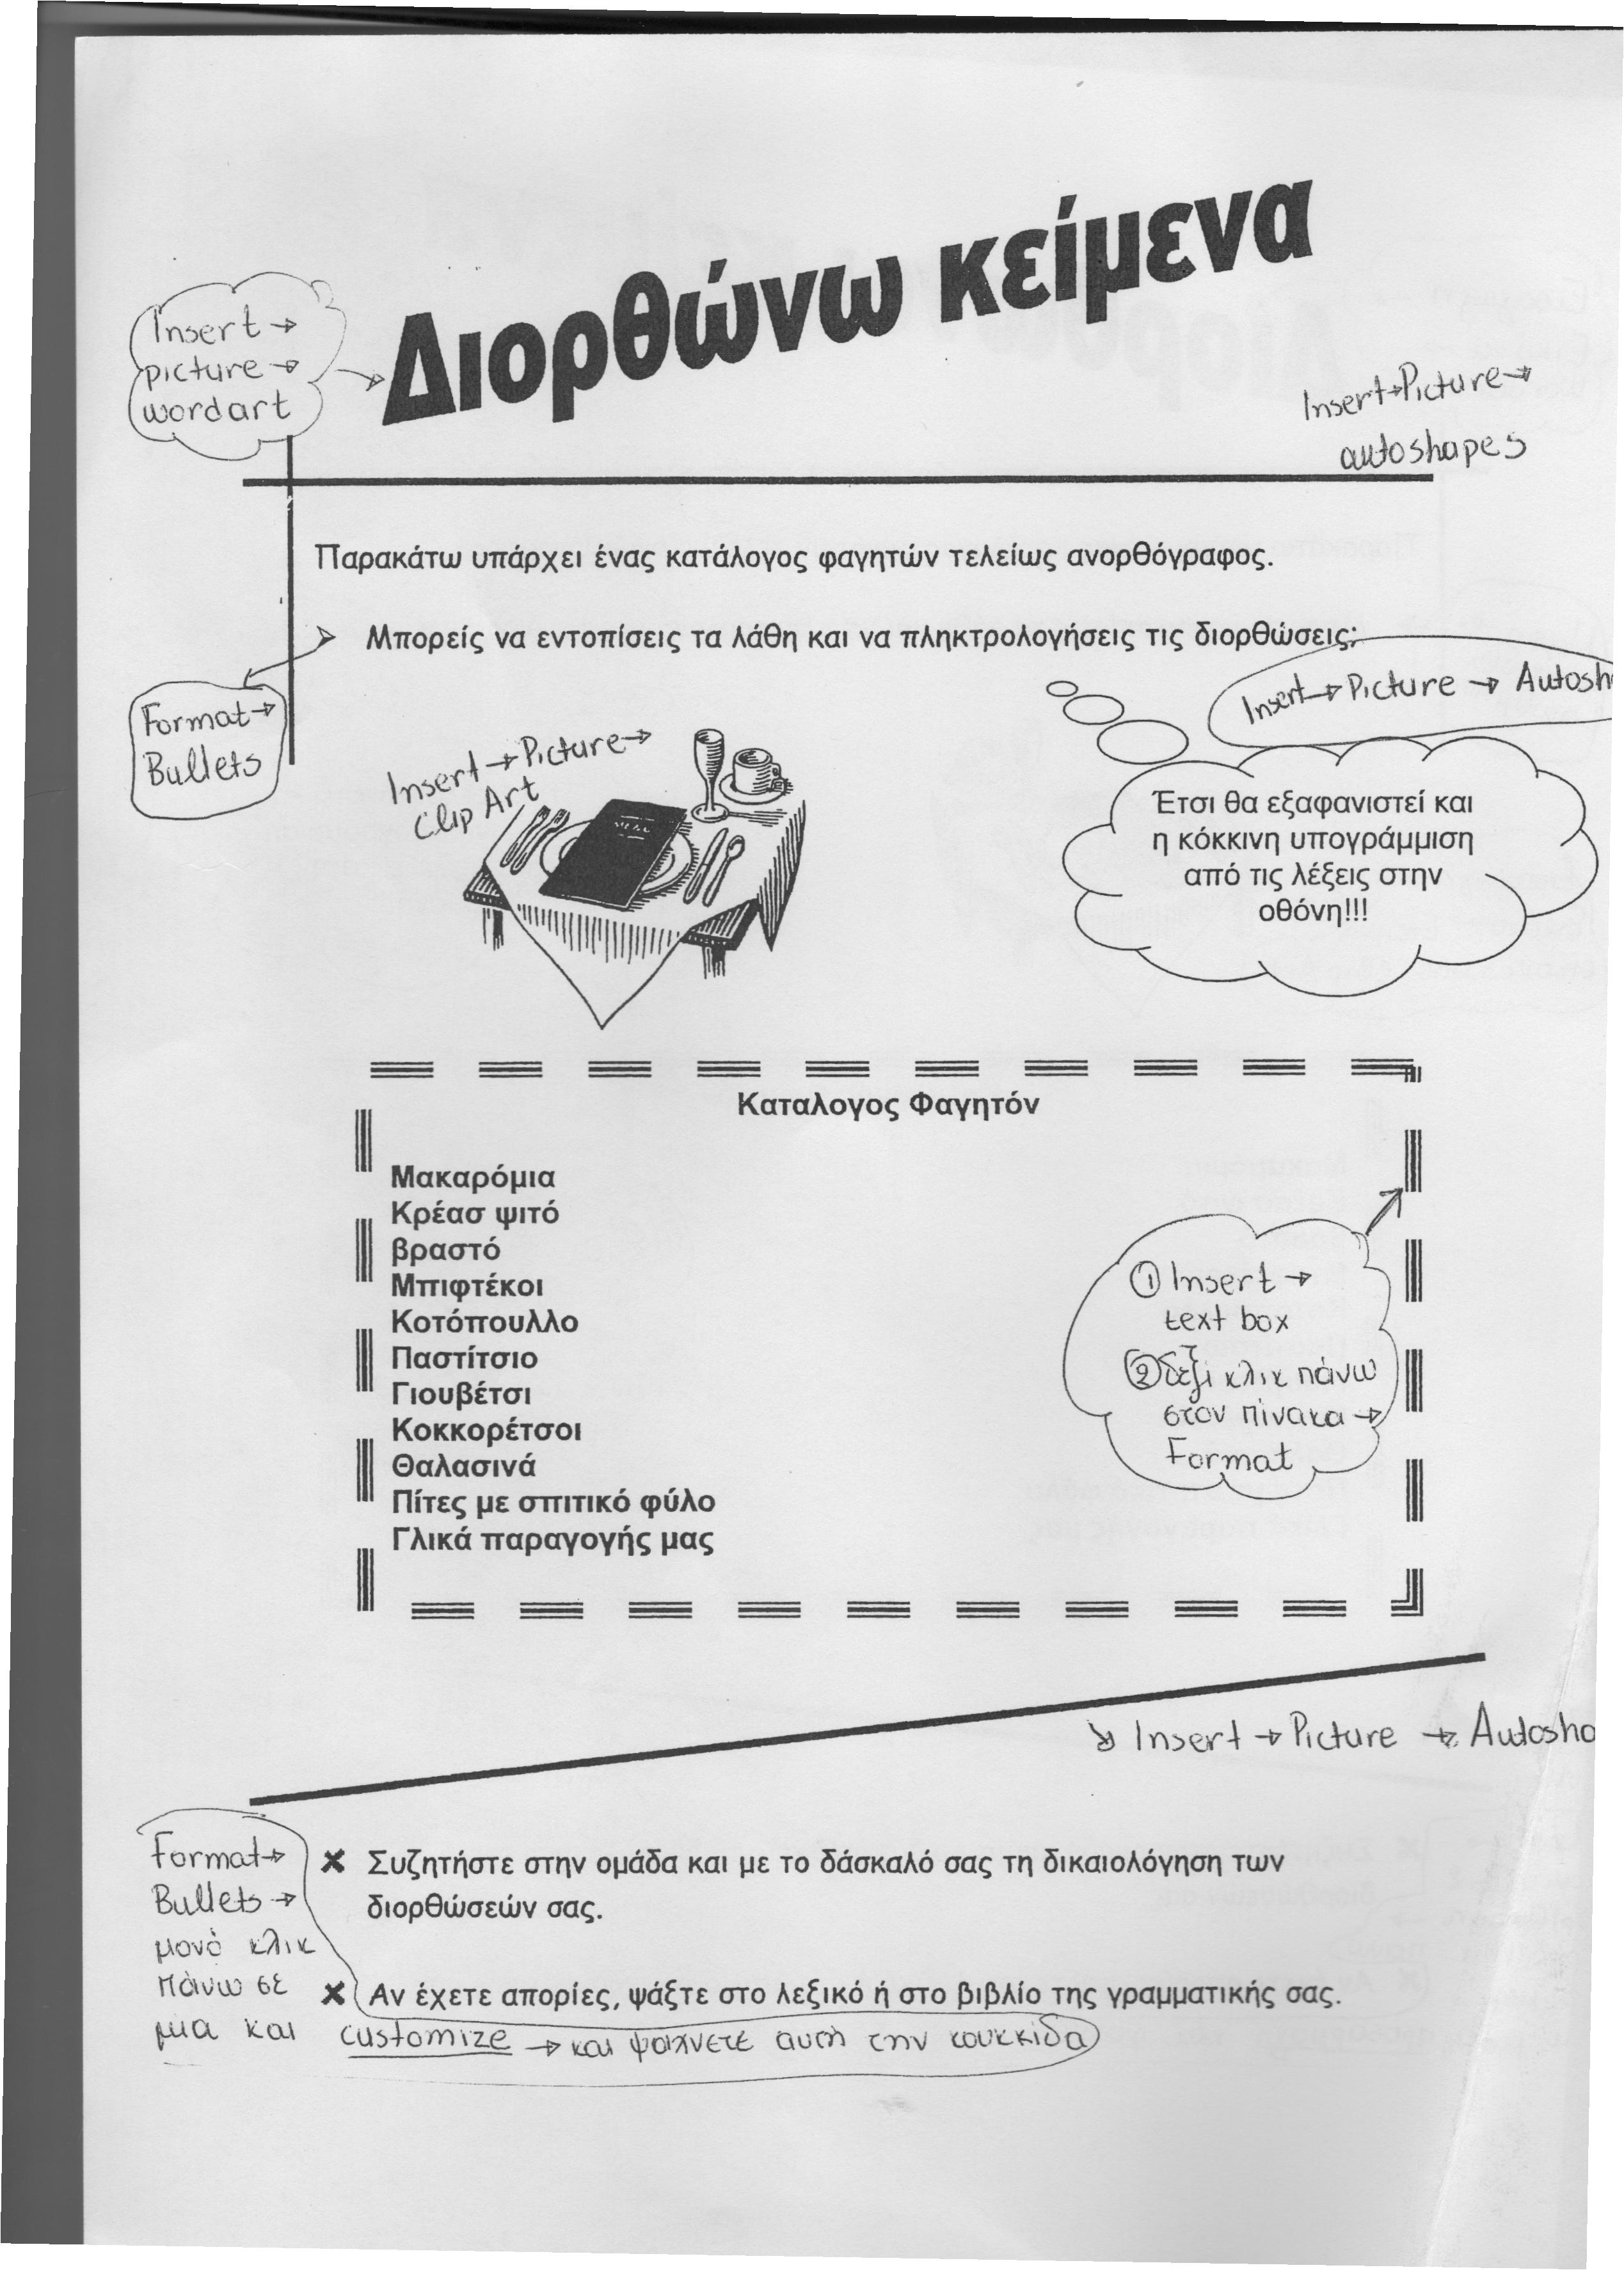 Διορθώνω κείμενα
Insert →
picture →
wordart
Insert→Picture→
autoshapes
Παρακάτω υπάρχει ένας κατάλογος φαγητών τελείως ανορθόγραφος.
Μπορείς να εντοπίσεις τα λάθη και να πληκτρολογήσεις τις διορθώσεις;
Format→
Bullets
Insert→Picture → Autosh
Insert→Picture→
Clip Art
Έτσι θα εξαφανιστεί και
η κόκκινη υπογράμμιση
από τις λέξεις στην
οθόνη!!!
Καταλογος Φαγητόν
Μακαρόμια
Κρέασ ψιτό
βραστό
Μπιφτέκοι
Κοτόπουλλο
Παστίτσιο
Γιουβέτσι
Κοκκορέτσοι
Θαλασινά
Πίτες με σπιτικό φύλο
Γλικά παραγογής μας
① Insert →
text box
② δεξί κλικ πάνω
στον πίνακα →
Format
Insert → Picture → Autosho
Format→
Bullets →
μονό κλικ
πάνω σε
μια και customize → και ψάχνετε αυτή την κουκκίδα
✖ Συζητήστε στην ομάδα και με το δάσκαλό σας τη δικαιολόγηση των
διορθώσεών σας.
✖ Αν έχετε απορίες, ψάξτε στο λεξικό ή στο βιβλίο της γραμματικής σας.